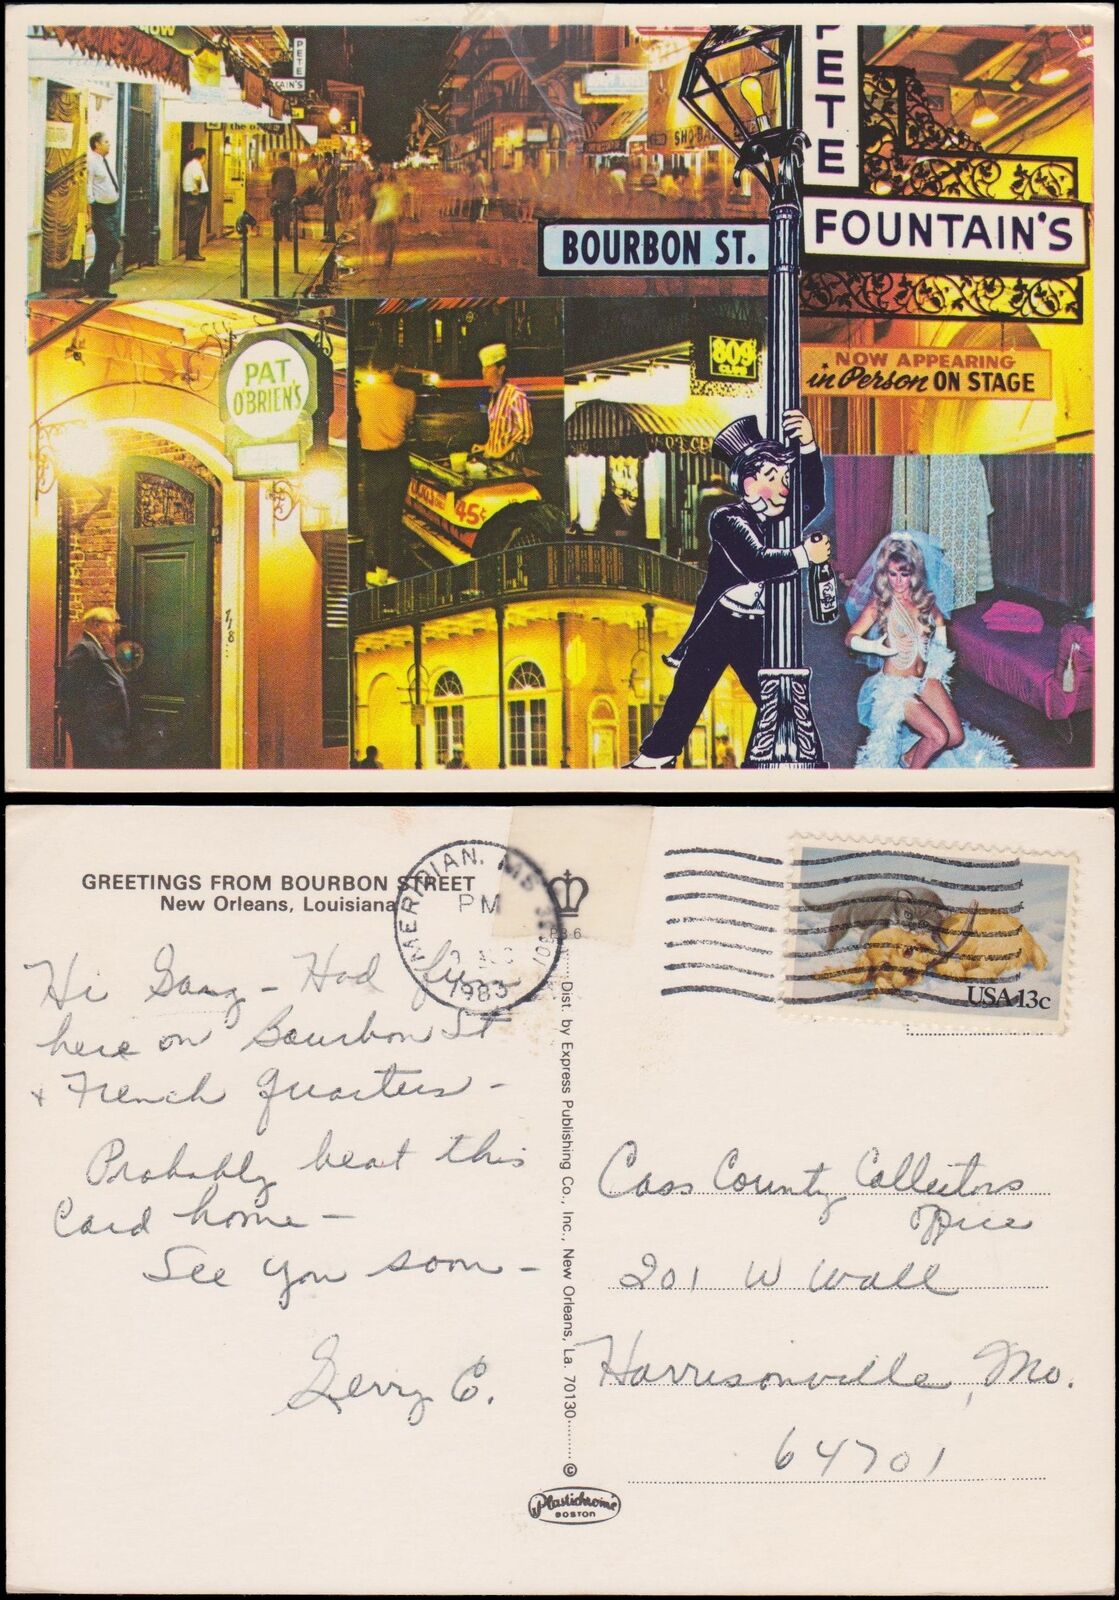 PETE
FOUNTAIN'S
PETE
FOUNTAIN'S
BOURBON ST.
PAT
O'BRIEN'S
45¢
809
CLUB
NOW APPEARING
in Person ON STAGE
718
GREETINGS FROM BOURBON STREET
New Orleans, Louisiana
MERIDIAN, MS
PM
1983
USA 13c
Hi Gang - Had fun
here on Bourbon St
+ French Quarters -
Probably beat this
Card home -
See you soon -
Gerry C.
Dist. by Express Publishing Co., Inc., New Orleans, La. 70130
©
Plastichrome
BOSTON
Cass County Collectors
Office
201 W Wall
Harrisonville, Mo.
64701